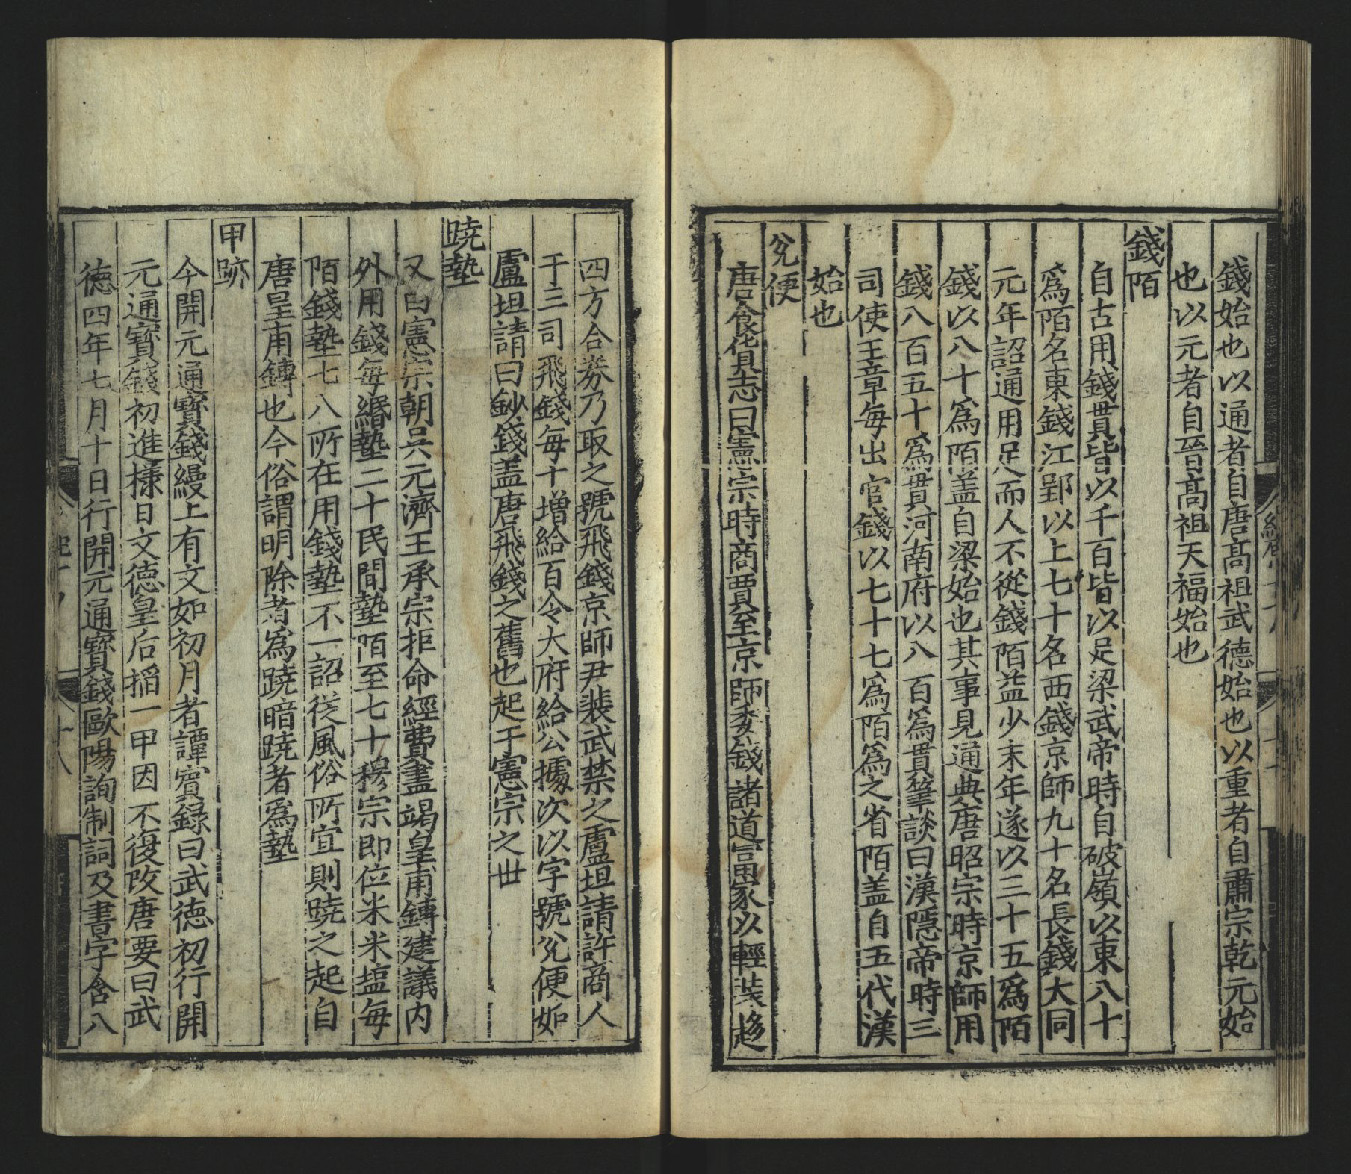 錢始也以通者自唐髙祖武德始也以重者自肅宗乾元始
也以元者自晉高祖天福始也
錢陌
自古用錢貫皆以千百皆以足梁武帝時自破嶺以東八十
爲陌名東錢江郢以上七十名西錢京師九十名長錢大同
元年詔通用足而人不從錢陌益少末年遂以三十五爲陌
錢以八十爲陌盖自梁始也其事見通典唐昭宗時京師用
錢八百五十爲貫河南府以八百爲貫筆談曰漢隱帝時三
司使王章每出官錢以七十七爲陌爲之省陌盖自五代漢
始也
兊便
唐食貨志曰憲宗時商賈至京師委錢諸道富家以輕裝趍
四方合券乃取之號飛錢京師尹裴武禁之盧坦請許商人
于三司飛錢每十増給百令大府給公據次以字號兊便如
盧坦請曰鈔錢盖唐飛錢之舊也起于憲宗之世
蹺墊
又曰憲宗朝吳元濟王承宗拒命經費盡竭皇甫鏄建議内
外用錢每緡墊二十民間墊陌至七十穆宗即位米米塩每
陌錢墊七八所在用錢墊不一詔從風俗所宜則蹺之起自
唐皇甫鏄也今俗謂明除者爲蹺暗蹺者爲墊
甲跡
今開元通寳錢縵上有文如初月者譚賓録曰武德初行開
元通寳錢初進樣日文德皇后搯一甲因不復改唐要曰武
德四年七月十日行開元通寳錢歐陽詢制詞及書字含八